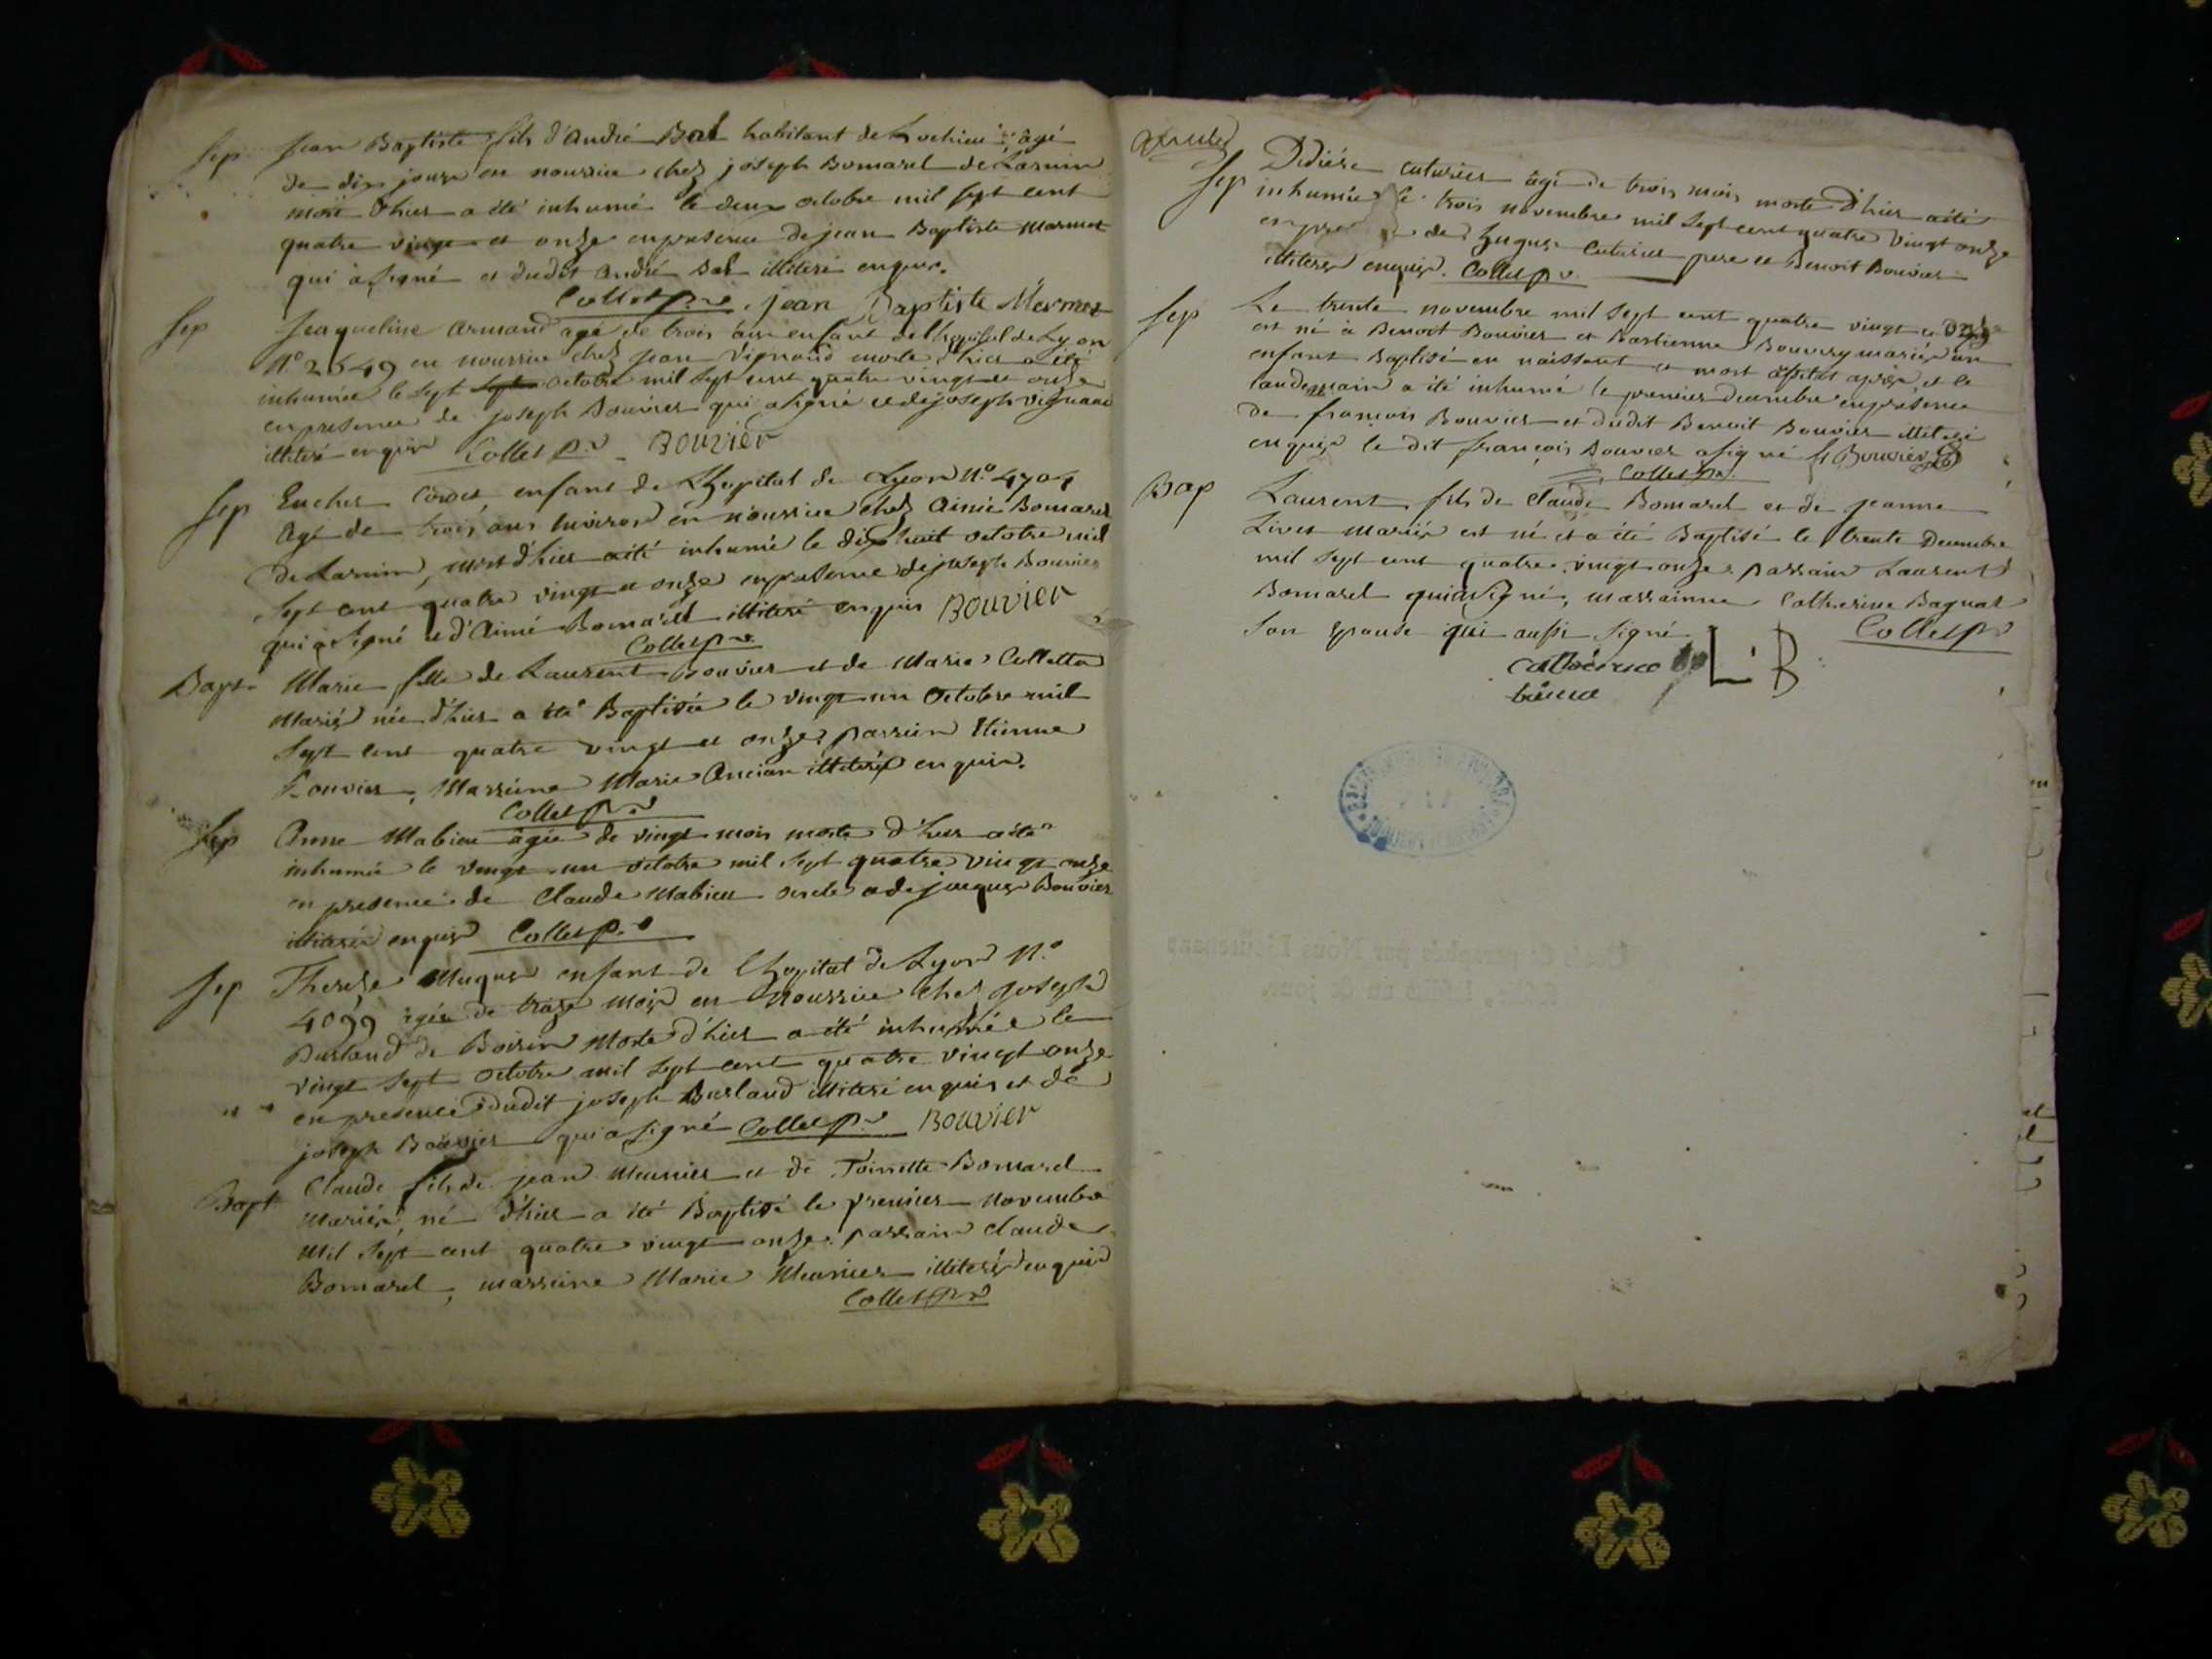 Sep Jean Baptiste fils d'André Bal habitant de Lochieu âgé
de dix jours en nourrice chez joseph Bomarel de
mort d'hier a été inhumé le deux octobre mil sept cent
quatre vingt et onze en presence de jean Baptiste Marmet
qui a signé et dudit André Bal illiteré enquis.
Collet p. jean Baptiste Mermet
Sep Jaqueline Armand agé de trois ans enfant de lhopital de Lyon
N.º 2649 en nourrice chez jean Vignaud morte d'hier a été
inhumée le sept octobre mil sept cent quatre vingt et onze
en presence de joseph Bouvier qui a signé et de joseph Vignaud
illiteré enquis Collet p. Bouvier
Sep Eucher enfant de Lhopital de Lyon N.º
Agé de trois ans environ en nourrice chez Aimé Bomarel
mort d'hier a été inhumé le dix huit octobre mil
sept cent quatre vingt et onze en presence de joseph Bouvier
qui a signé et d'Aimé Bomarel illiteré enquis Bouvier
Collet p.
Bapt Marie fille de Laurent Bouvier et de Marie Collette
Mariés née d'hier a été Baptisée le vingt un Octobre mil
sept cent quatre vingt et onze, parrein Etienne
Bouvier, Marreine Marie Ancian illiterés enquis.
Collet p.
Sep Anne Mabieu âgée de vingt mois morte d'hier a été
inhumée le vingt un octobre mil sept quatre vingt onze
en presence de Claude Mabieu oncle et de jacques Bouvier
illiterés enquis Collet p.
Sep Therese enfant de lhopital de Lyon N.º
4099 agée de treize mois en nourrice chez joseph
Burlaud de Morte d'hier a été inhumée le
vingt sept octobre mil sept cent quatre vingt onze
en presence dudit joseph Burlaud illiteré enquis et de
joseph Bouvier qui a signé Collet p. Bouvier
Bapt Claude fils de jean Meunier et de Toinette Bomarel
mariés, né d'hier a été Baptisé le premier Novembre
mil sept cent quatre vingt onze. parrain Claude
Bomarel, marreine Marie Meunier illiterés enquis
Collet p.
Sep Didière Cuturier âgé de trois mois morte d'hier a été
inhumée le trois novembre mil sept cent quatre vingt onze
en pre de Hugues Cuturier pere et Benoit Bouvier
illiterés enquis. Collet p.
Sep Le trente novembre mil sept cent quatre vingt et onze
est né à Benoit Bouvier et Bastienne Bouvery mariés un
enfant Baptisé en naissant et mort aussitot après, et le
landemain a été inhumé le premier decembre en présence
de françois Bouvier et dudit Benoit Bouvier illiteré
enquis le dit françois Bouvier a signé f Bouvier
Collet p.
Bap Laurent fils de Claude Bomarel et de jeanne
Livet mariés est né et a été Baptisé le trente Decembre
mil sept cent quatre vingt onze. parrain Laurent
Bomarel qui a signé, marrainne Catherine
son epouse qui aussi signé Collet p.
catherine L. B